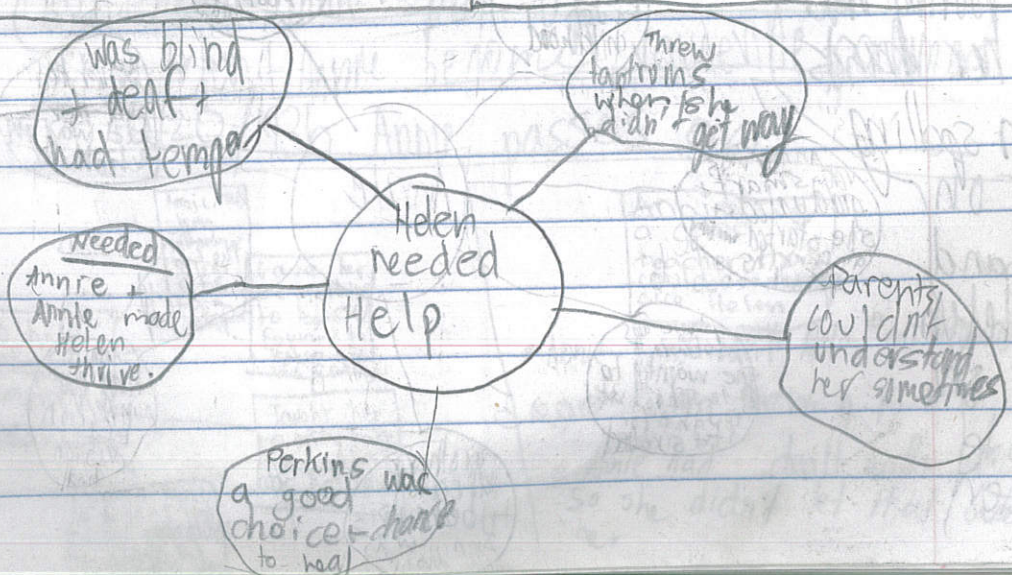 was blind
+ deaf +
had temper
Threw
tantrums
when she
didn't get way
Helen
needed
Help
Needed
Annie +
Annie made
Helen
thrive.
Parents
couldn't
understand
her sometimes
Perkins was
a good
choice + chance
to heal